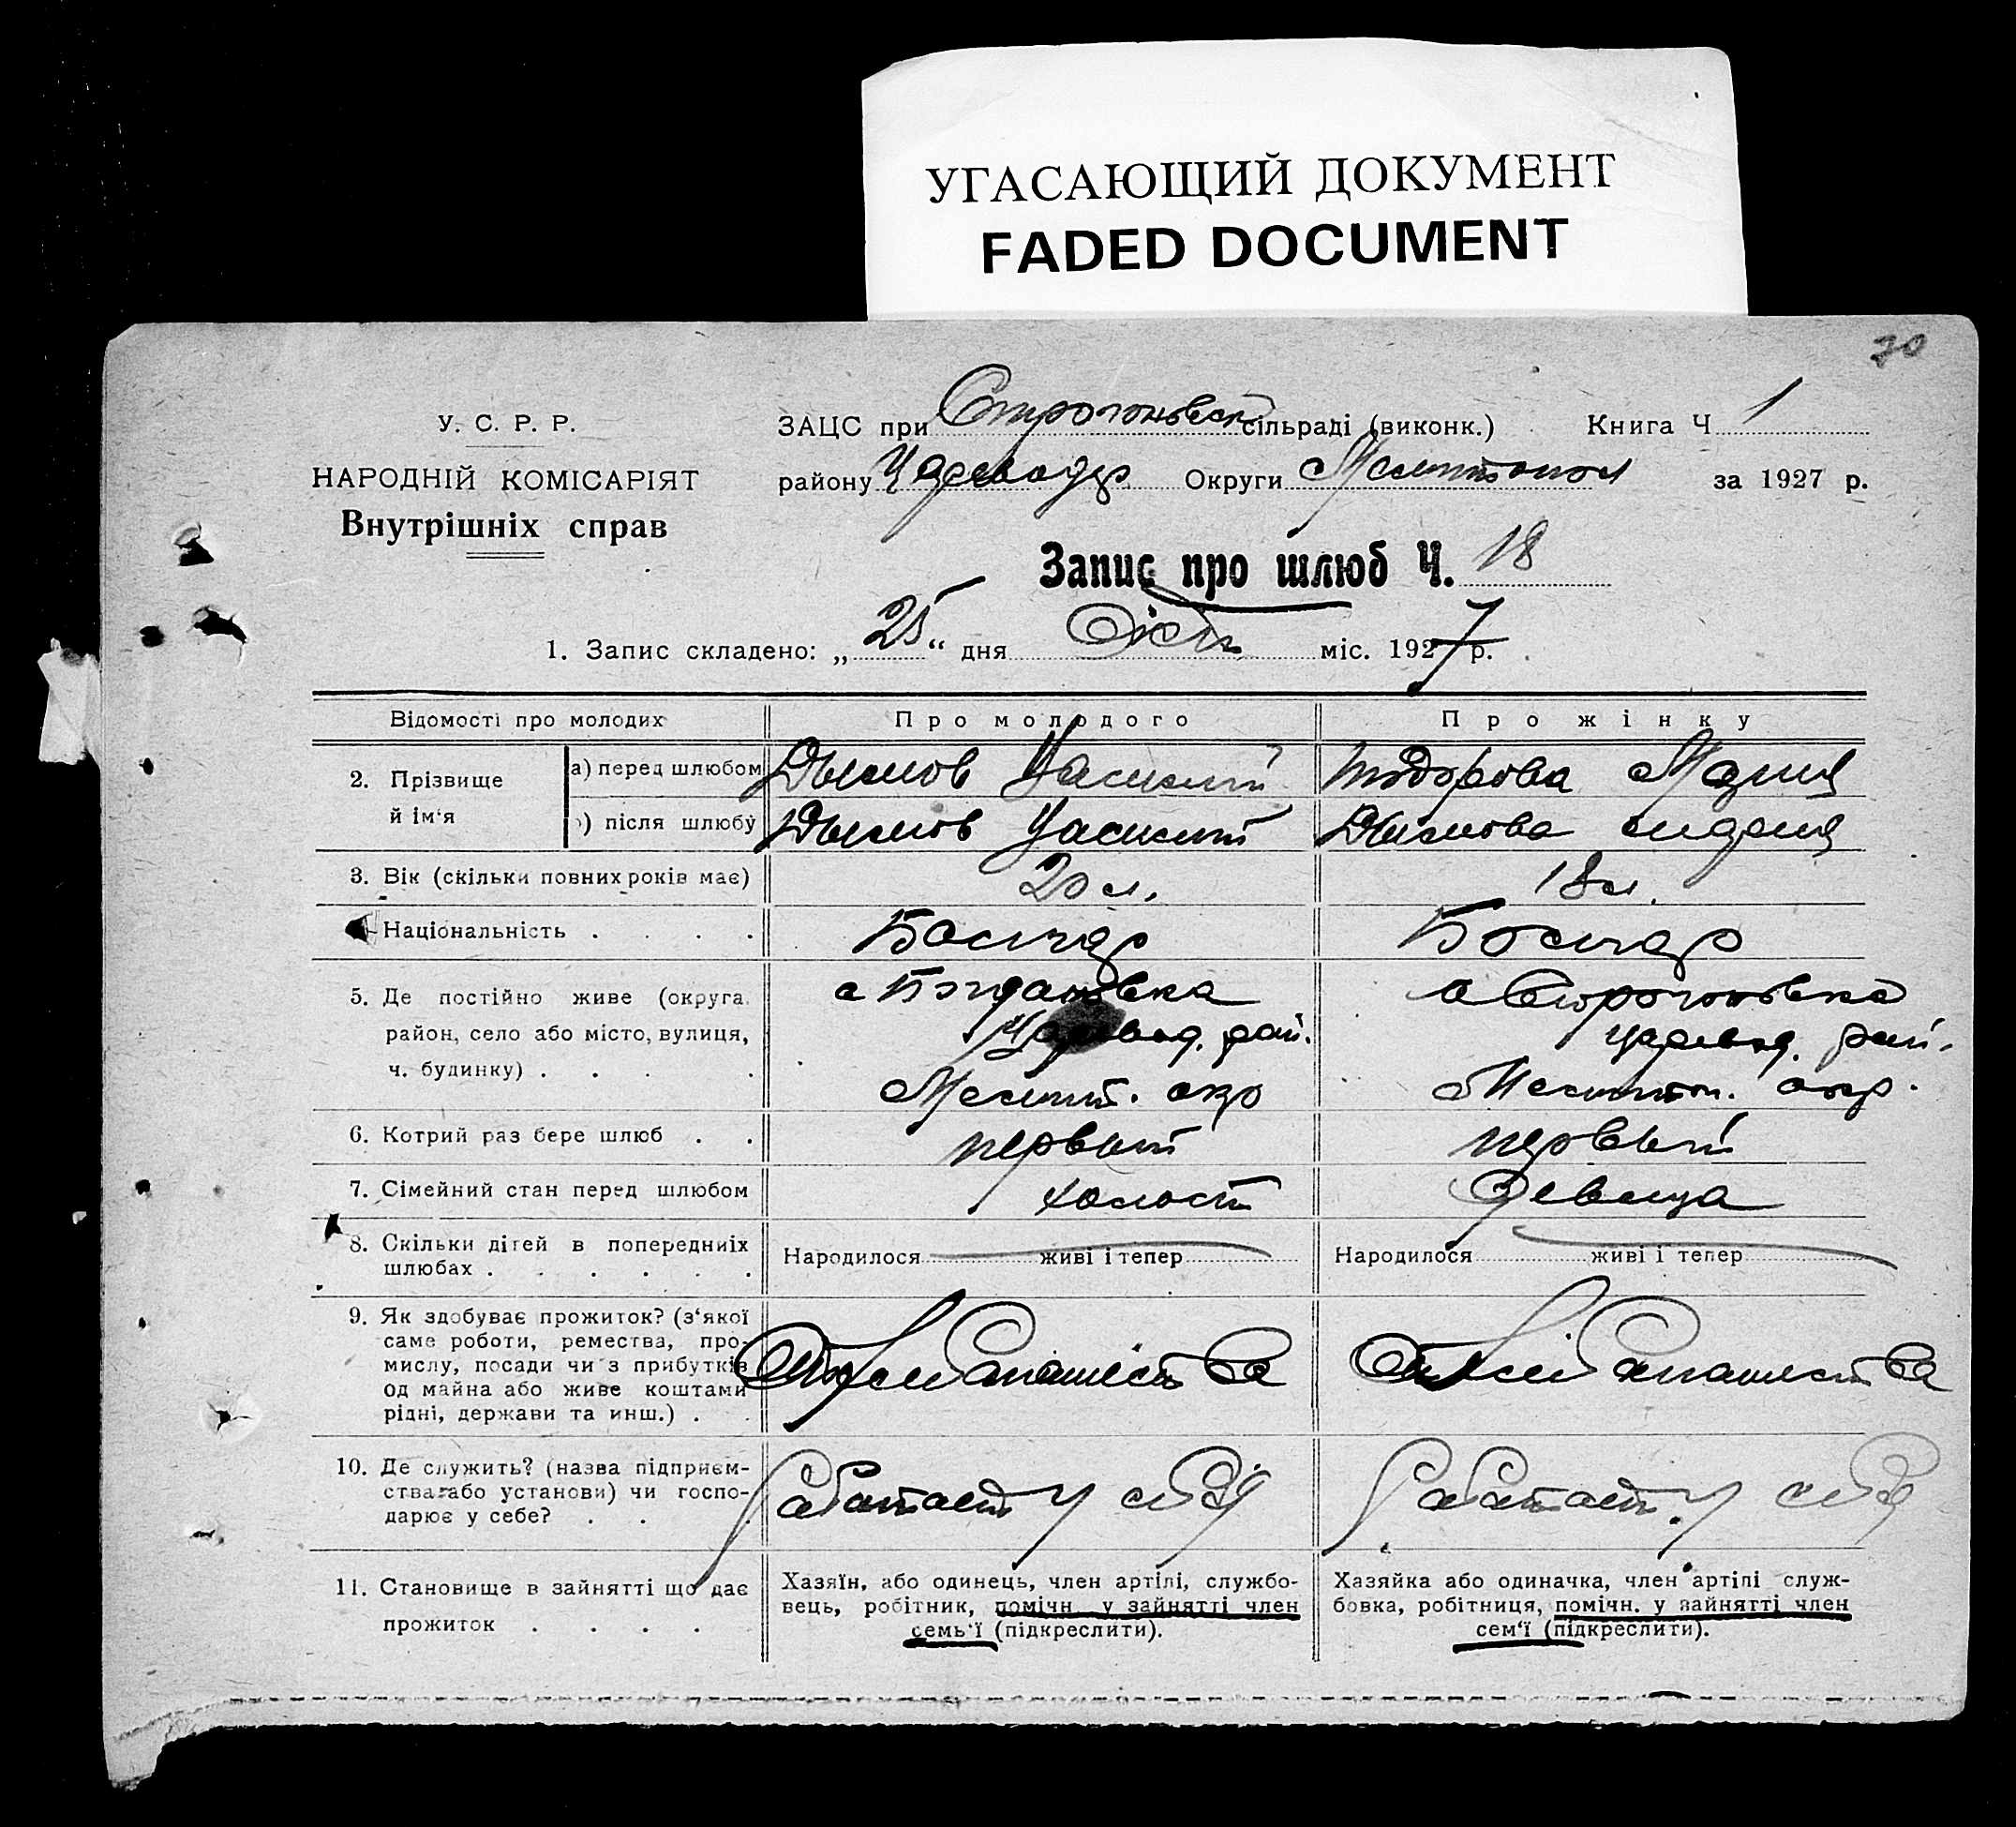 УГАСАЮЩИЙ ДОКУМЕНТ
FADED DOCUMENT
70
У. С. Р. Р.
НАРОДНІЙ КОМІСАРІЯТ
Внутрішніх справ
ЗАЦС при Строгоновск сільраді (виконк.) Книга Ч 1
району Царевод Округи Мелитопол за 1927 р.
Запис про шлюб Ч. 18
1. Запис складено: „25“ дня міс. 1927 р.
Відомості про молодих Про молодого Про жінку
2. Прізвище й ім‘я
а) перед шлюбом Дымов Василий Тодорова Мария
б) після шлюбу Дымов Василий Дымова Мария
3. Вік (скільки повних років має) 20 л. 18 л.
Національність . . . . Болгар Болгар
5. Де постійно живе (округа, с Богдановка с Строгоновка
район, село або місто, вулиця, Царевод. рай. Царевод. рай.
ч. будинку) . . . . Мелит. окр Мелитоп. окр.
6. Котрий раз бере шлюб . . первый первый
7. Сімейний стан перед шлюбом холост девица
8. Скільки дітей в попередниіх Народилося живі і тепер Народилося живі і тепер
шлюбах . . . . . .
9. Як здобуває прожиток? (з‘якої
саме роботи, ремества, про-
мислу, посади чи з прибутків хлебопашества хлебопашества
од майна або живе коштами
рідні, держави та инш.) . .
10. Де служить? (назва підприєм- работает у себя работает у себя
ства або установи) чи госпо-
дарює у себе? . . .
11. Становище в зайнятті що дає
прожиток . . . .
Хазяїн, або одинець, член артілі, службо-
вець, робітник, помічн у зайнятті член
семь‘ї (підкреслити).
Хазяйка або одиначка, член артілі служ-
бовка, робітниця, помічн. у зайнятті член
сем‘ї (підкреслити).